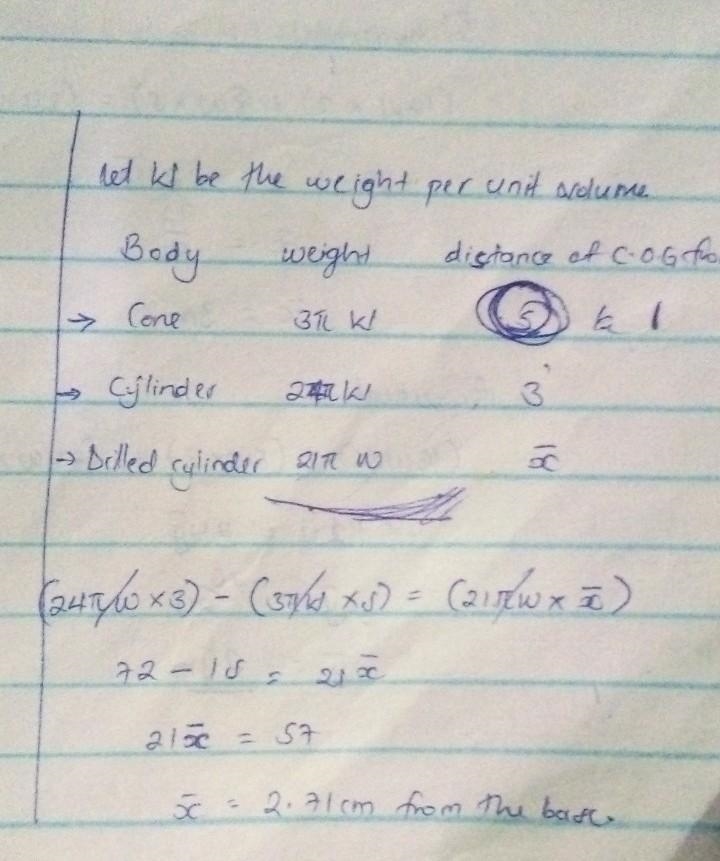 Let W be the weight per unit volume
Body weight distance of C.O.G fro
→ Cone 3π W 5 1
→ Cylinder 24π W 3
→ Drilled cylinder 21π W x̄
(24πW × 3) - (3πW × 5) = (21πW × x̄)
72 - 15 = 21 x̄
21x̄ = 57
x̄ = 2.71cm from the base.